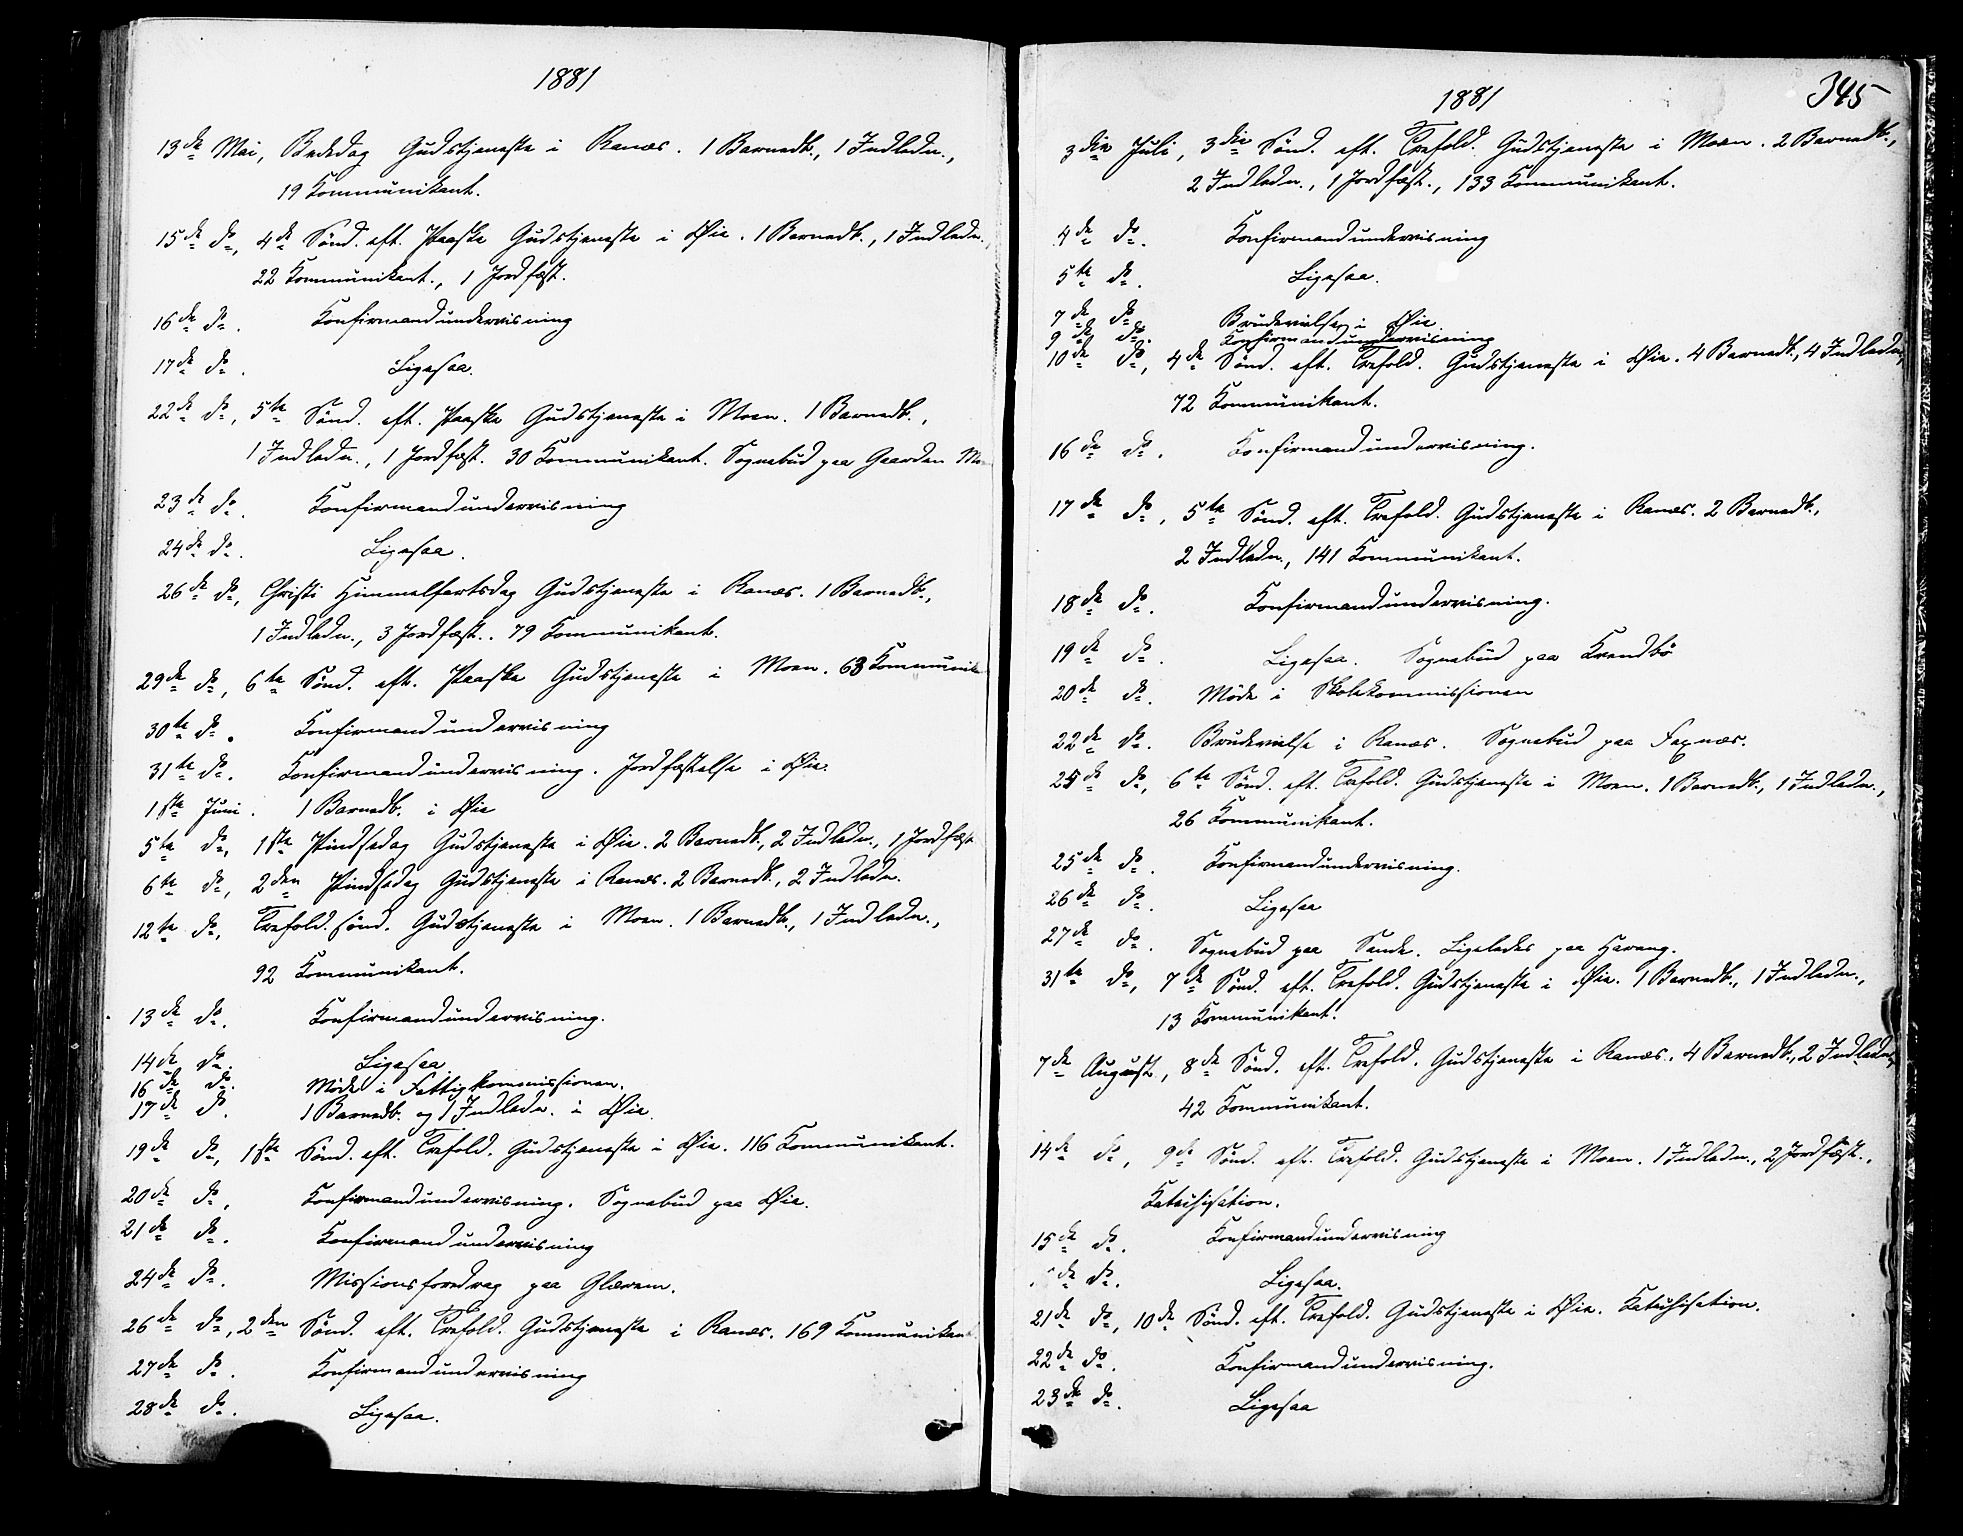 1881
13de Mai, Bededag Gudstjeneste i Ranæs. 1 Barnedb., 1 Indledn.,
19 Kommunikant.
15de do, 4de Sønd. eft. Paaske Gudstjeneste i Øie. 1 Barnedb., 1 Indledn.,
22 Kommunikant., 1 Jordfæst.
16de do. Konfirmandundervisning
17de do. Ligesaa.
22de do, 5te Sønd. eft. Paaske Gudstjeneste i Moen. 1 Barnedb.,
1 Indledn., 1 Jordfæst. 30 Kommunikant. Sognebud paa Gaarden
23de do. Konfirmandundervisning
24de do. Ligesaa.
26de do, Christi Himmelfartsdag Gudstjeneste i Ranæs. 1 Barnedb.,
1 Indledn., 3 Jordfæst.. 79 Kommunikant.
29de do, 6te Sønd. eft. Paaske Gudstjeneste i Moen. 63 Kommunik
30te do. Konfirmandundervisning
31te do. Konfirmandundervisning. Jordfæstelse i Øie.
1ste Juni. 1 Barnedb. i Øie
5te do, 1ste Pindsedag Gudstjeneste i Øie. 2 Barnedb., 2 Indledn., 1 Jordfæst
6te do, 2den Pindsedag Gudstjeneste i Ranæs. 2 Barnedb., 2 Indledn.
12te do, Trefold. sønd. Gudstjeneste i Moen. 1 Barnedb., 1 Indledn.,
92 Kommunikant.
13de do. Konfirmandundervisning.
14de do. Ligesaa.
16de do. Møde i Fattigkommissionen.
17de do. 1 Barnedb. og 1 Indledn. i Øie.
19de do, 1ste Sønd. eft. Trefold. Gudstjeneste i Øie. 116 Kommunikant.
20de do, Konfirmandundervisning. Sognebud paa Øie.
21de do. Konfirmandundervisning
24de do. Missionsforedrag paa Glærem.
26de do, 2den Sønd. eft. Trefold. Gudstjeneste i Ranæs. 169 Kommunikant
27de do. Konfirmandundervisning
28de do. Ligesaa.
345
1881
3die Juli, 3die Sønd. eft. Trefold. Gudstjeneste i Moen. 2 Barnedb.,
2 Indledn., 1 Jordfæst., 133 Kommunikant.
4de do. Konfirmandundervisning
5te do. Ligesaa.
7de do Brudevielse i Øie
9de do. Konfirmandundervisning
10de do, 4de Sønd. eft. Trefold. Gudstjeneste i Øie. 4 Barnedb., 4 Indledn,
72 Kommunikant.
16de do. Konfirmandundervisning.
17de do, 5te Sønd. eft. Trefold. Gudstjeneste i Ranæs. 2 Barnedb.,
2 Indledn., 141 Kommunikant.
18de do. Konfirmandundervisning.
19de do. Ligesaa. Sognebud paa Kvendbø
20de do. Møde i Skolekommissionen
22de do. Brudevielse i Ranæs. Sognebud paa Faxnæs.
25de do, 6te Sønd. eft. Trefold. Gudstjeneste i Moen. 1 Barnedb., 1 Indledn.,
26 Kommunikant.
25de do. Konfirmandundervisning.
26de do. Ligesaa
27de do. Sognebud paa Sande. Ligeledes paa Havang.
31te do, 7de Sønd. eft. Trefold. Gudstjeneste i Øie. 1 Barnedb., 1 Indledn.,
13 Kommunikant.
7de August, 8de Sønd. eft. Trefold. Gudstjeneste i Ranæs. 4 Barnedb., 2 Indledn,
42 Kommunikant.
14de do, 9de Sønd. eft. Trefold. Gudstjeneste i Moen. 1 Indledn., 2 Jordfæst.,
Katechisation.
15de do. Konfirmandundervisning
de do. Ligesaa.
21de do, 10de Sønd. eft. Trefold. Gudstjeneste i Øie. Katechisation.
22de do. Konfirmandundervisning.
23de do. Ligesaa